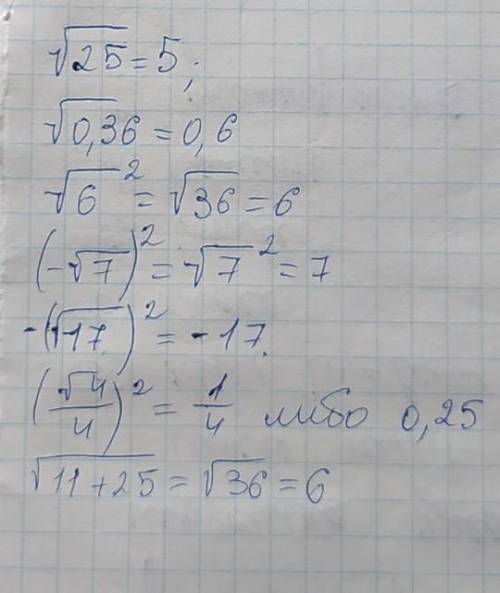 √25 = 5;
√0,36 = 0,6
√6² = √36 = 6
(-√7)² = √7² = 7
-(√17)² = -17.
(√4/4)² = 1/4 либо 0,25
√11+25 = √36 = 6